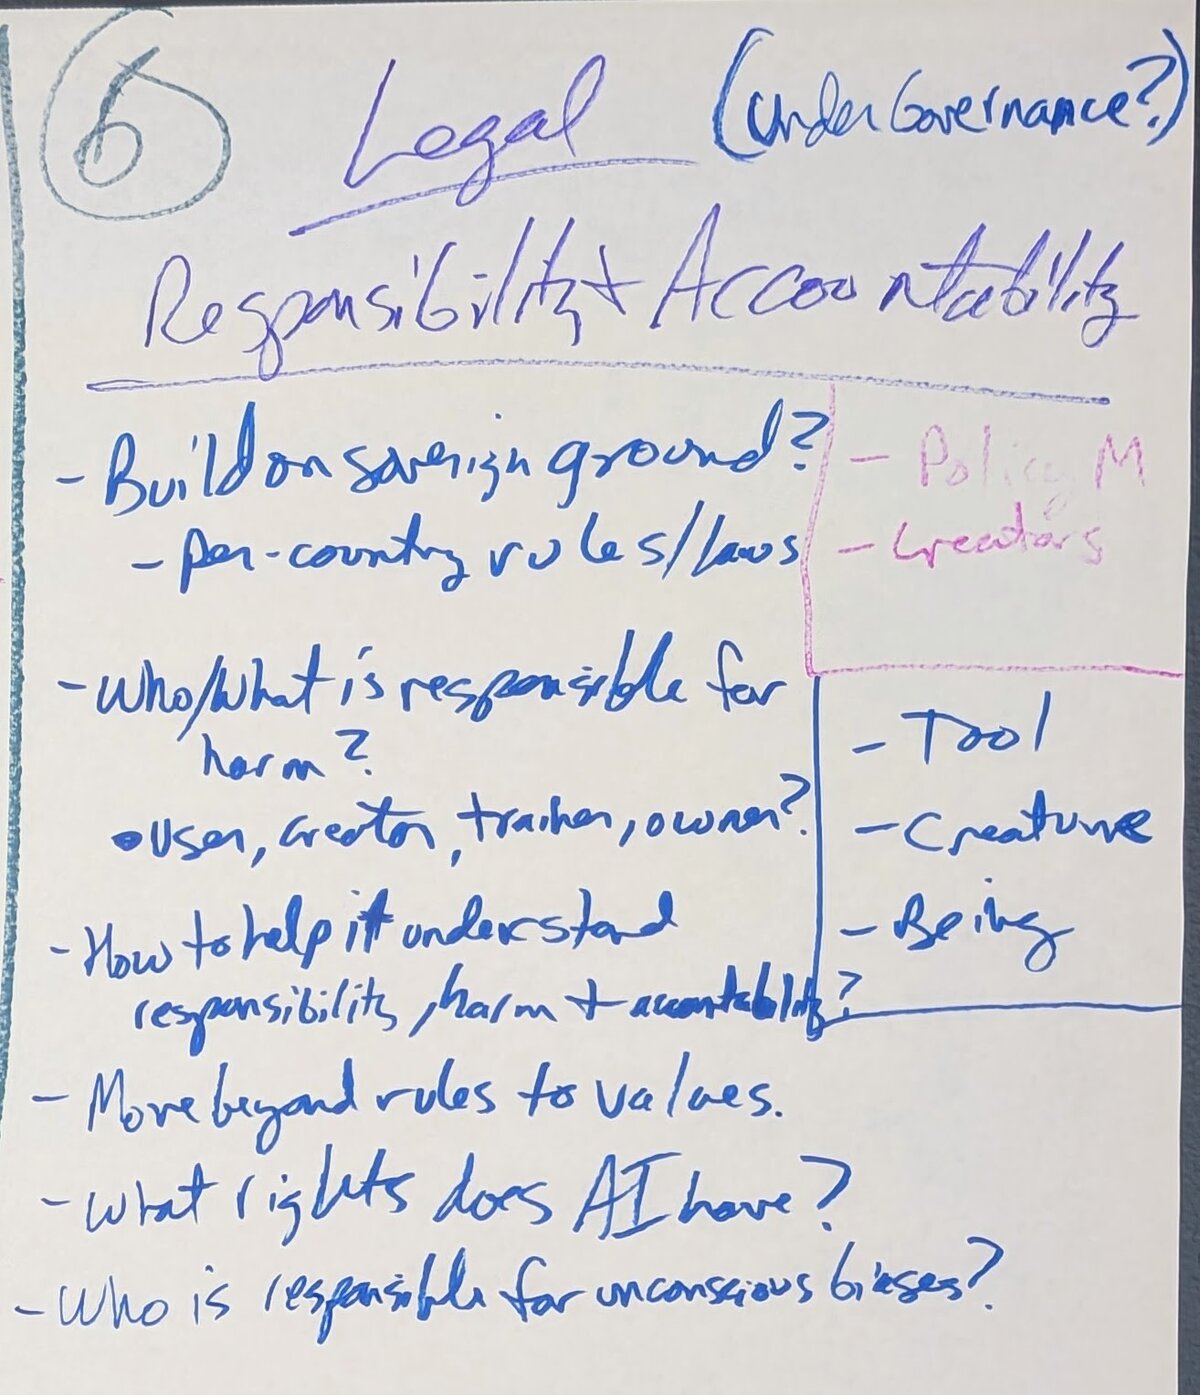 6
Legal (under Governance?)
Responsibility + Accountability
- Build on soverign ground?
- per-country rules/laws
- Who/What is responsible for
harm?
• User, creator, trainer, owner?
- How to help it understand
responsibility, harm + accountability?
- Move beyond rules to values.
- What rights does AI have?
- Who is responsible for unconscious biases?
- Policy M
- Creators
- Tool
- Creature
- Being